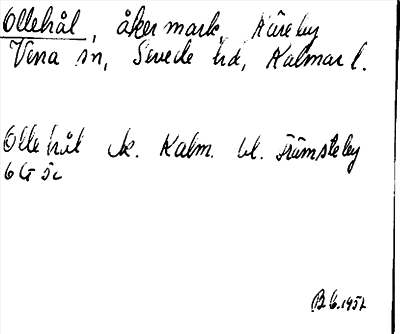 Ollehål, åkermark, Kåreby
Vena sn, Sevede hd, Kalmar l.
Ollehål åk. Kalm. bl. Främsteby
6 G
B.G. 1957